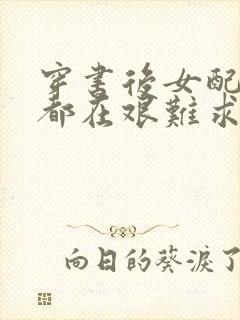 穿書後女配
都在艱難求
向日的葵淚了